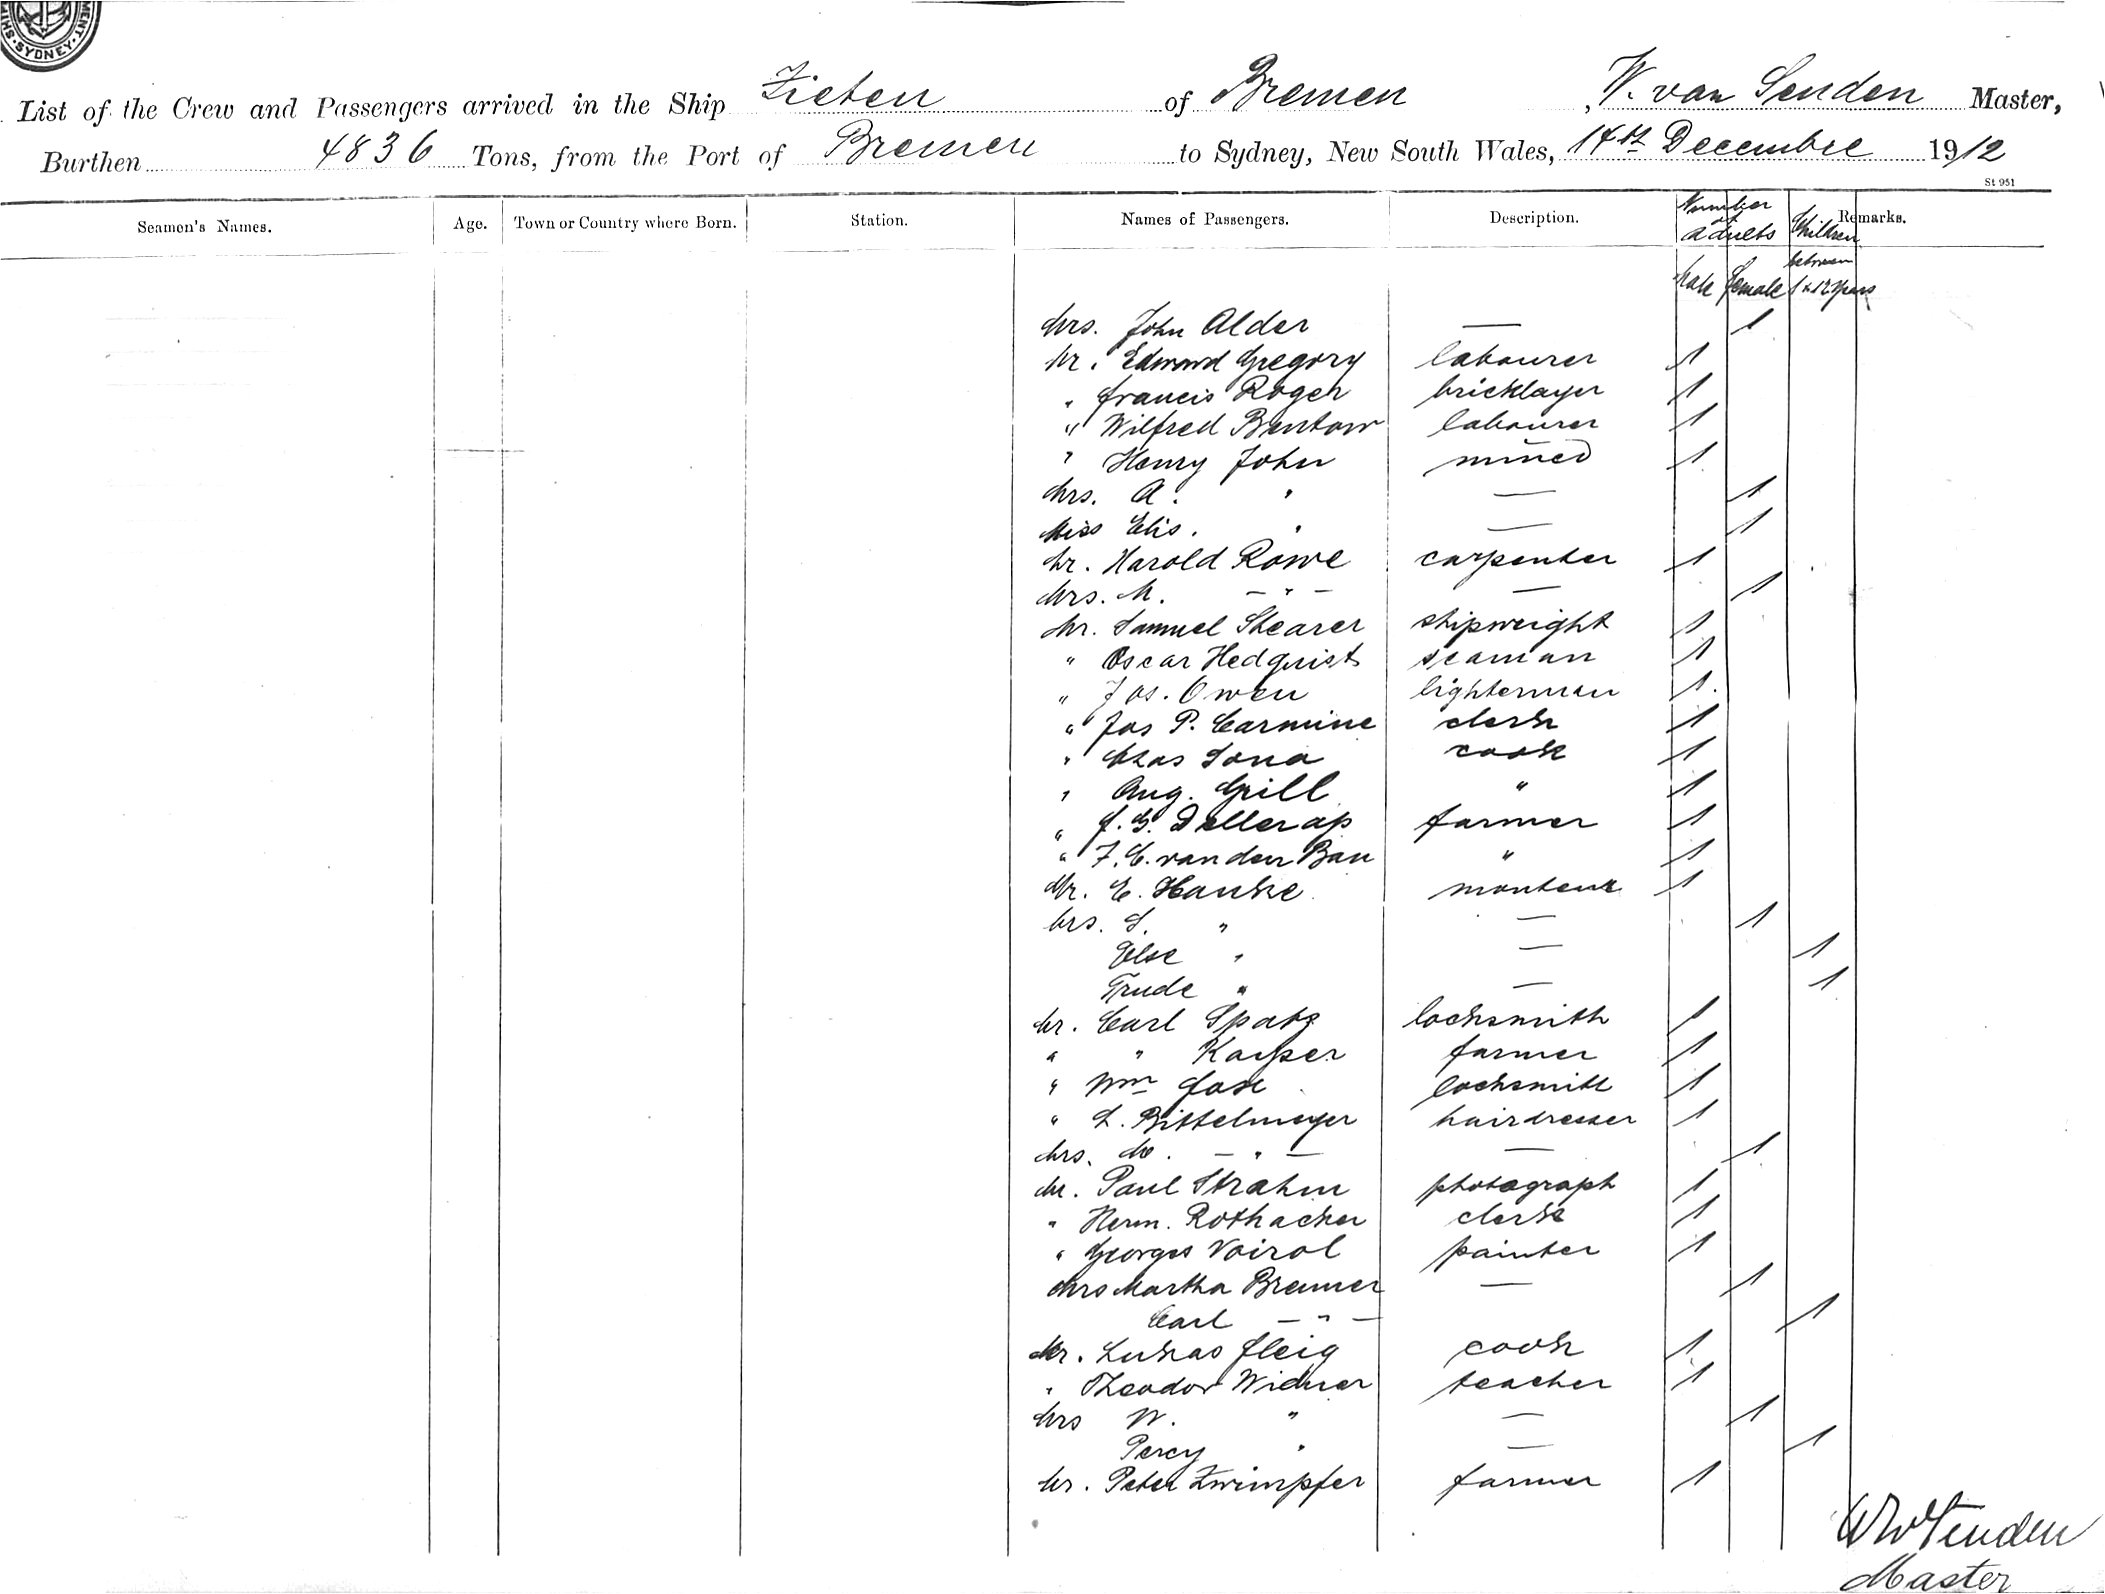 SYDNEY
List of the Crew and Passengers arrived in the Ship Zieten of Bremen, W. van Senden Master,
Burthen 4836 Tons, from the Port of Bremen to Sydney, New South Wales, 14th December 1912
St 951
Seamen's Names. Age. Town or Country where Born. Station. Names of Passengers. Description. Number of adults Children Remarks.
Male Female between 1 & 12 years
Mrs. John Alder — 1
Mr. Edward Gregory labourer 1
" Francis Roger bricklayer 1
" Wilfred Bentow labourer 1
" Henry John miner 1
Mrs. A. " — 1
Miss Elis. " — 1
Mr. Harold Rowe carpenter 1
Mrs. M. — " — — 1
Mr. Samuel Shearer shipweight 1
" Oscar Hedquist seaman 1
" Jos. Owen lighterman 1
" Jos P. Carmine clerk 1
" Chas Iona cook 1
" Aug. Grill " 1
" J. G. Dellerap farmer 1
" F. C. van den Bau " 1
Mr. E. Hanke monteur 1
Mrs. S. " — 1
Else " — 1
Trude " — 1
Mr. Carl Spatz locksmith 1
" " Kayser farmer 1
" Wm Jose locksmith 1
" L. Bittelmeyer hairdresser 1
Mrs. M. — " — — 1
Mr. Paul Strahm photograph 1
" Herm. Rothacker clerk 1
" Georges Voirol painter 1
Mrs Martha Brenner — 1
Carl — " — 1
Mr. Lukas Fleig cook 1
" Theodor Widmer teacher 1
Mrs W. " — 1
Percy " — 1
Mr. Peter Zwimpfer farmer 1
W v Senden
Master